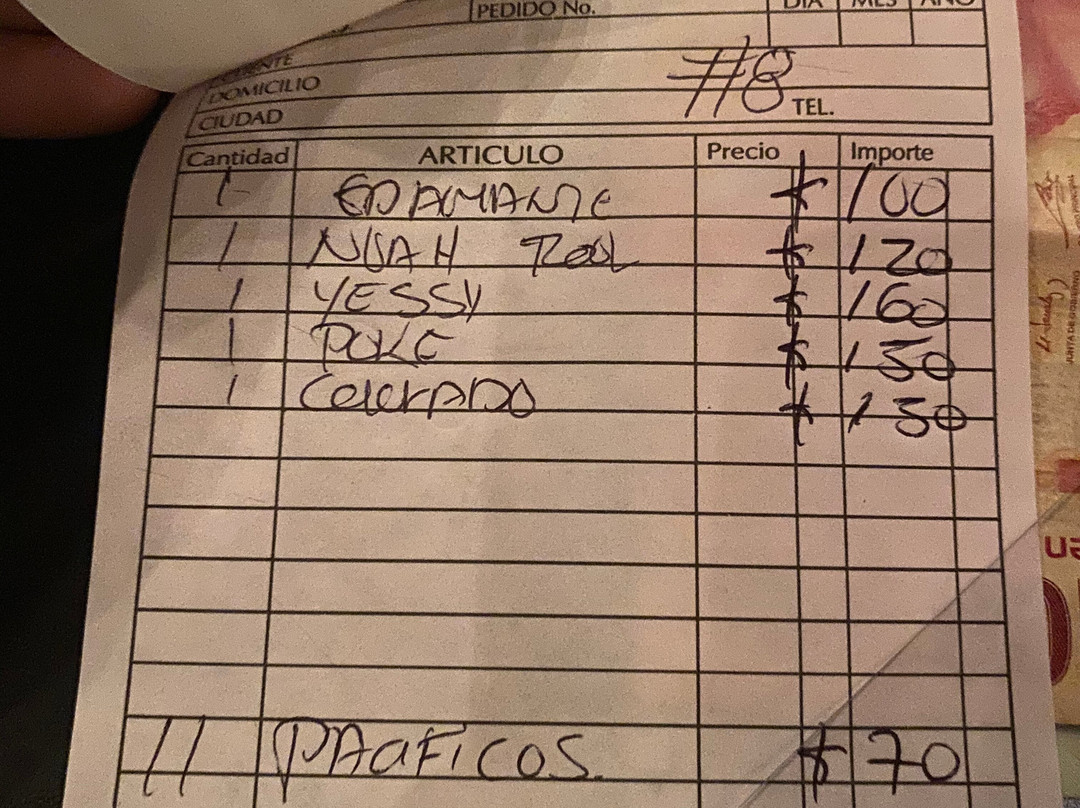 PEDIDO No. DIA MES AÑO
CLIENTE
DOMICILIO #8
CIUDAD TEL.
Cantidad ARTICULO Precio Importe
1 EDAMAME $ 100
1 NUAH ROLL $ 120
1 YESSY $ 160
1 POKE $ 150
1 COLORADO $ 150
11 PACIFICOS $ 70
JUNTA DE GOBIERNO